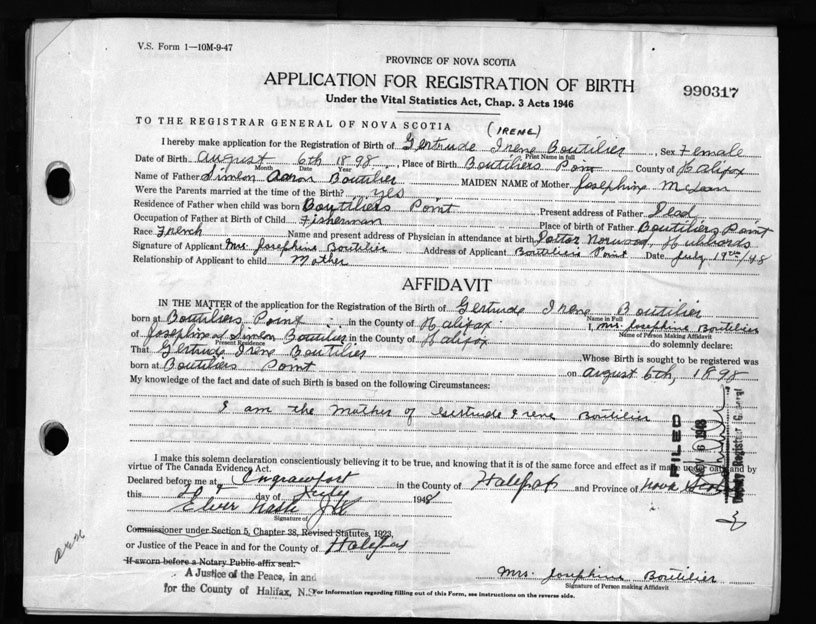 V.S. Form 1—10M-9-47
PROVINCE OF NOVA SCOTIA
APPLICATION FOR REGISTRATION OF BIRTH
990317
Under the Vital Statistics Act, Chap. 3 Acts 1946
TO THE REGISTRAR GENERAL OF NOVA SCOTIA (IRENE)
I hereby make application for the Registration of Birth of Gertrude Irene Boutilier, Sex Female
Print Name in full
Date of Birth August 6th 1898, Place of Birth Boutiliers Point County of Halifax
Month Date Year
Name of Father Simeon Aaron Boutilier MAIDEN NAME of Mother Josephine McLean
Were the Parents married at the time of the Birth? yes
Residence of Father when child was born Boutiliers Point Present address of Father Dead
Occupation of Father at Birth of Child Fisherman Place of birth of Father Boutiliers Point
Race French Name and present address of Physician in attendance at birth Hubbards
Signature of Applicant Mrs. Josephine Boutilier Address of Applicant Boutiliers Point Date July 19th/48
Relationship of Applicant to child Mother
AFFIDAVIT
IN THE MATTER of the application for the Registration of the Birth of Gertrude Irene Boutilier
Name in Full
born at Boutiliers Point in the County of Halifax I, Mrs Josephine Boutilier
Name of Person Making Affidavit
of Josephine & Simeon Boutilier in the County of Halifax do solemnly declare:
Present Residence
That Gertrude Irene Boutilier Whose Birth is sought to be registered was
born at Boutiliers Point on August 6th, 1898
My knowledge of the fact and date of such Birth is based on the following Circumstances:
I am the Mother of Gertrude Irene Boutilier
I make this solemn declaration conscientiously believing it to be true, and knowing that it is of the same force and effect as if made under oath and by
virtue of The Canada Evidence Act.
Declared before me at Ingramport in the County of Halifax and Province of Nova Scotia
this day of July 1948
Signature of
Commissioner under Section 5, Chapter 38, Revised Statutes, 1923,
or Justice of the Peace in and for the County of Halifax
If sworn before a Notary Public affix seal.
A Justice of the Peace, in and
for the County of Halifax, N.S.
Mrs. Josephine Boutilier
Signature of Person making Affidavit
For Information regarding filling out of this Form, see instructions on the reverse side.
FILED
6 1948
Deputy Registrar General